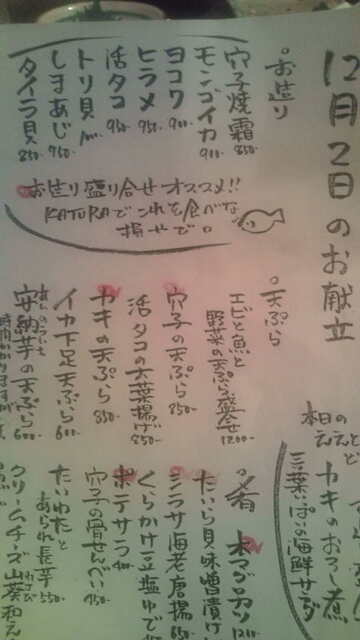 12月2日のお献立
本日の
カキのおろし煮
三葉いっぱいの海鮮サラダ
。お造り
穴子焼霜 850-
モンゴイカ 900-
ヨコワ 900-
ヒラメ 950-
活タコ 950-
トリ貝
しまあじ 950-
タイラ貝 850-
お造り盛り合せオススメ!!
KATURAでこれを食べな
損やで。
。天ぷら
エビと魚と
野菜の天ぷら盛合せ 1200-
穴子の天ぷら 850-
活タコの大葉揚げ 850-
カキの天ぷら 850-
イカ下足天ぷら 600-
安納芋の天ぷら 600-
。肴
本マグロカツ
たいら貝味噌漬け
シラサ海老唐揚 650-
くらかけ豆塩ゆで
ポテサラ
穴子の骨せんべい 450-
たいわたと
あられ長芋 550-
クリームチーズ山葵和え